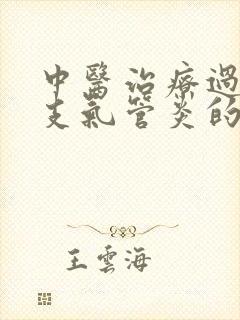 中醫治療過
支氣管炎的
王雲海